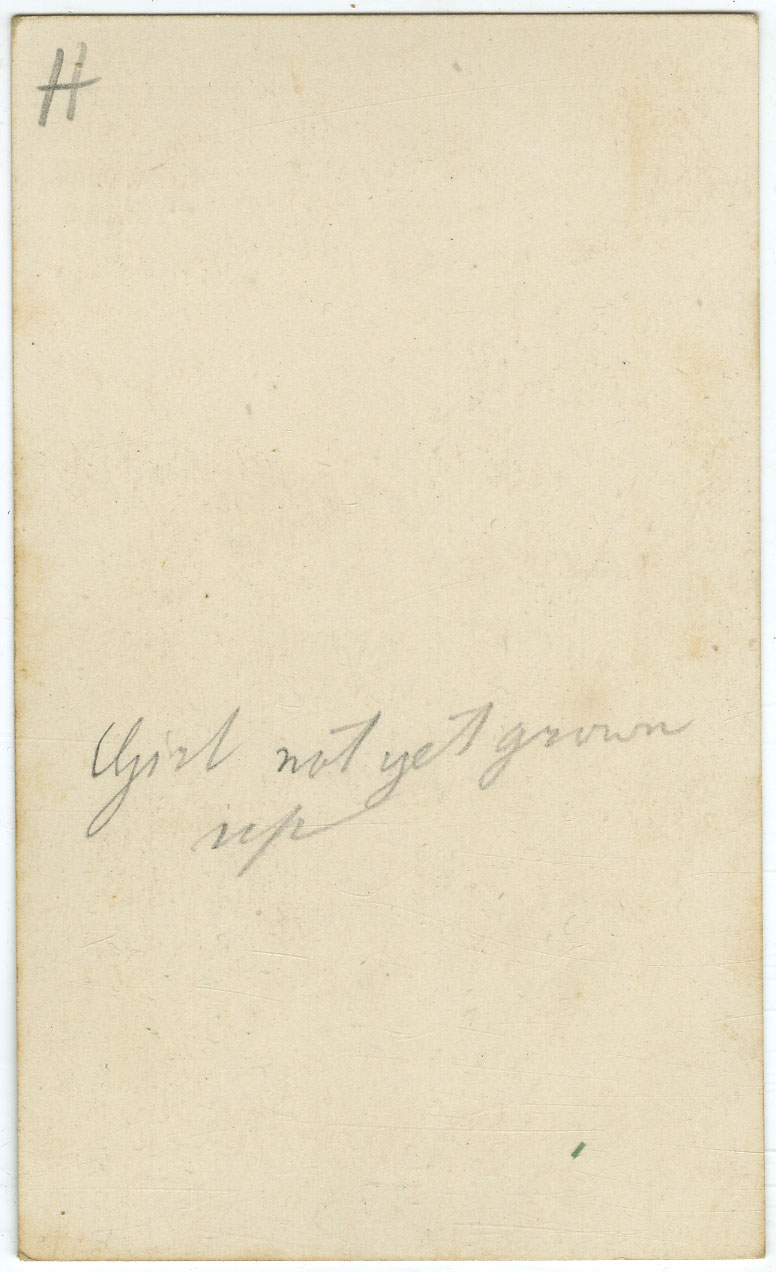 H
Girl not yet grown
up